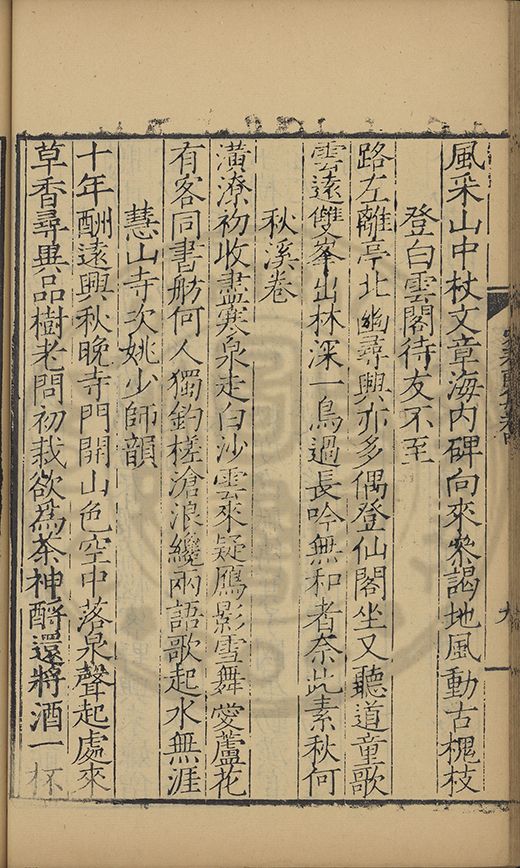 風采山中杖文章海内碑向來叅謁地風動古槐枝
登白雲閣待友不至
路左離亭北幽尋興亦多偶登仙閣坐又聽道童歌
雲遠雙峯出林深一鳥過長吟無和者奈此素秋何
秋溪卷
潢潦初收盡寒泉走白沙雲來疑鴈影雪舞愛蘆花
有客同書舫何人獨釣槎滄浪纔兩語歌起水無涯
慧山寺次姚少師韻
十年酬遠興秋晚寺門開山色空中落泉聲起處來
草香尋異品樹老問初栽欲為茶神酹還將酒一杯